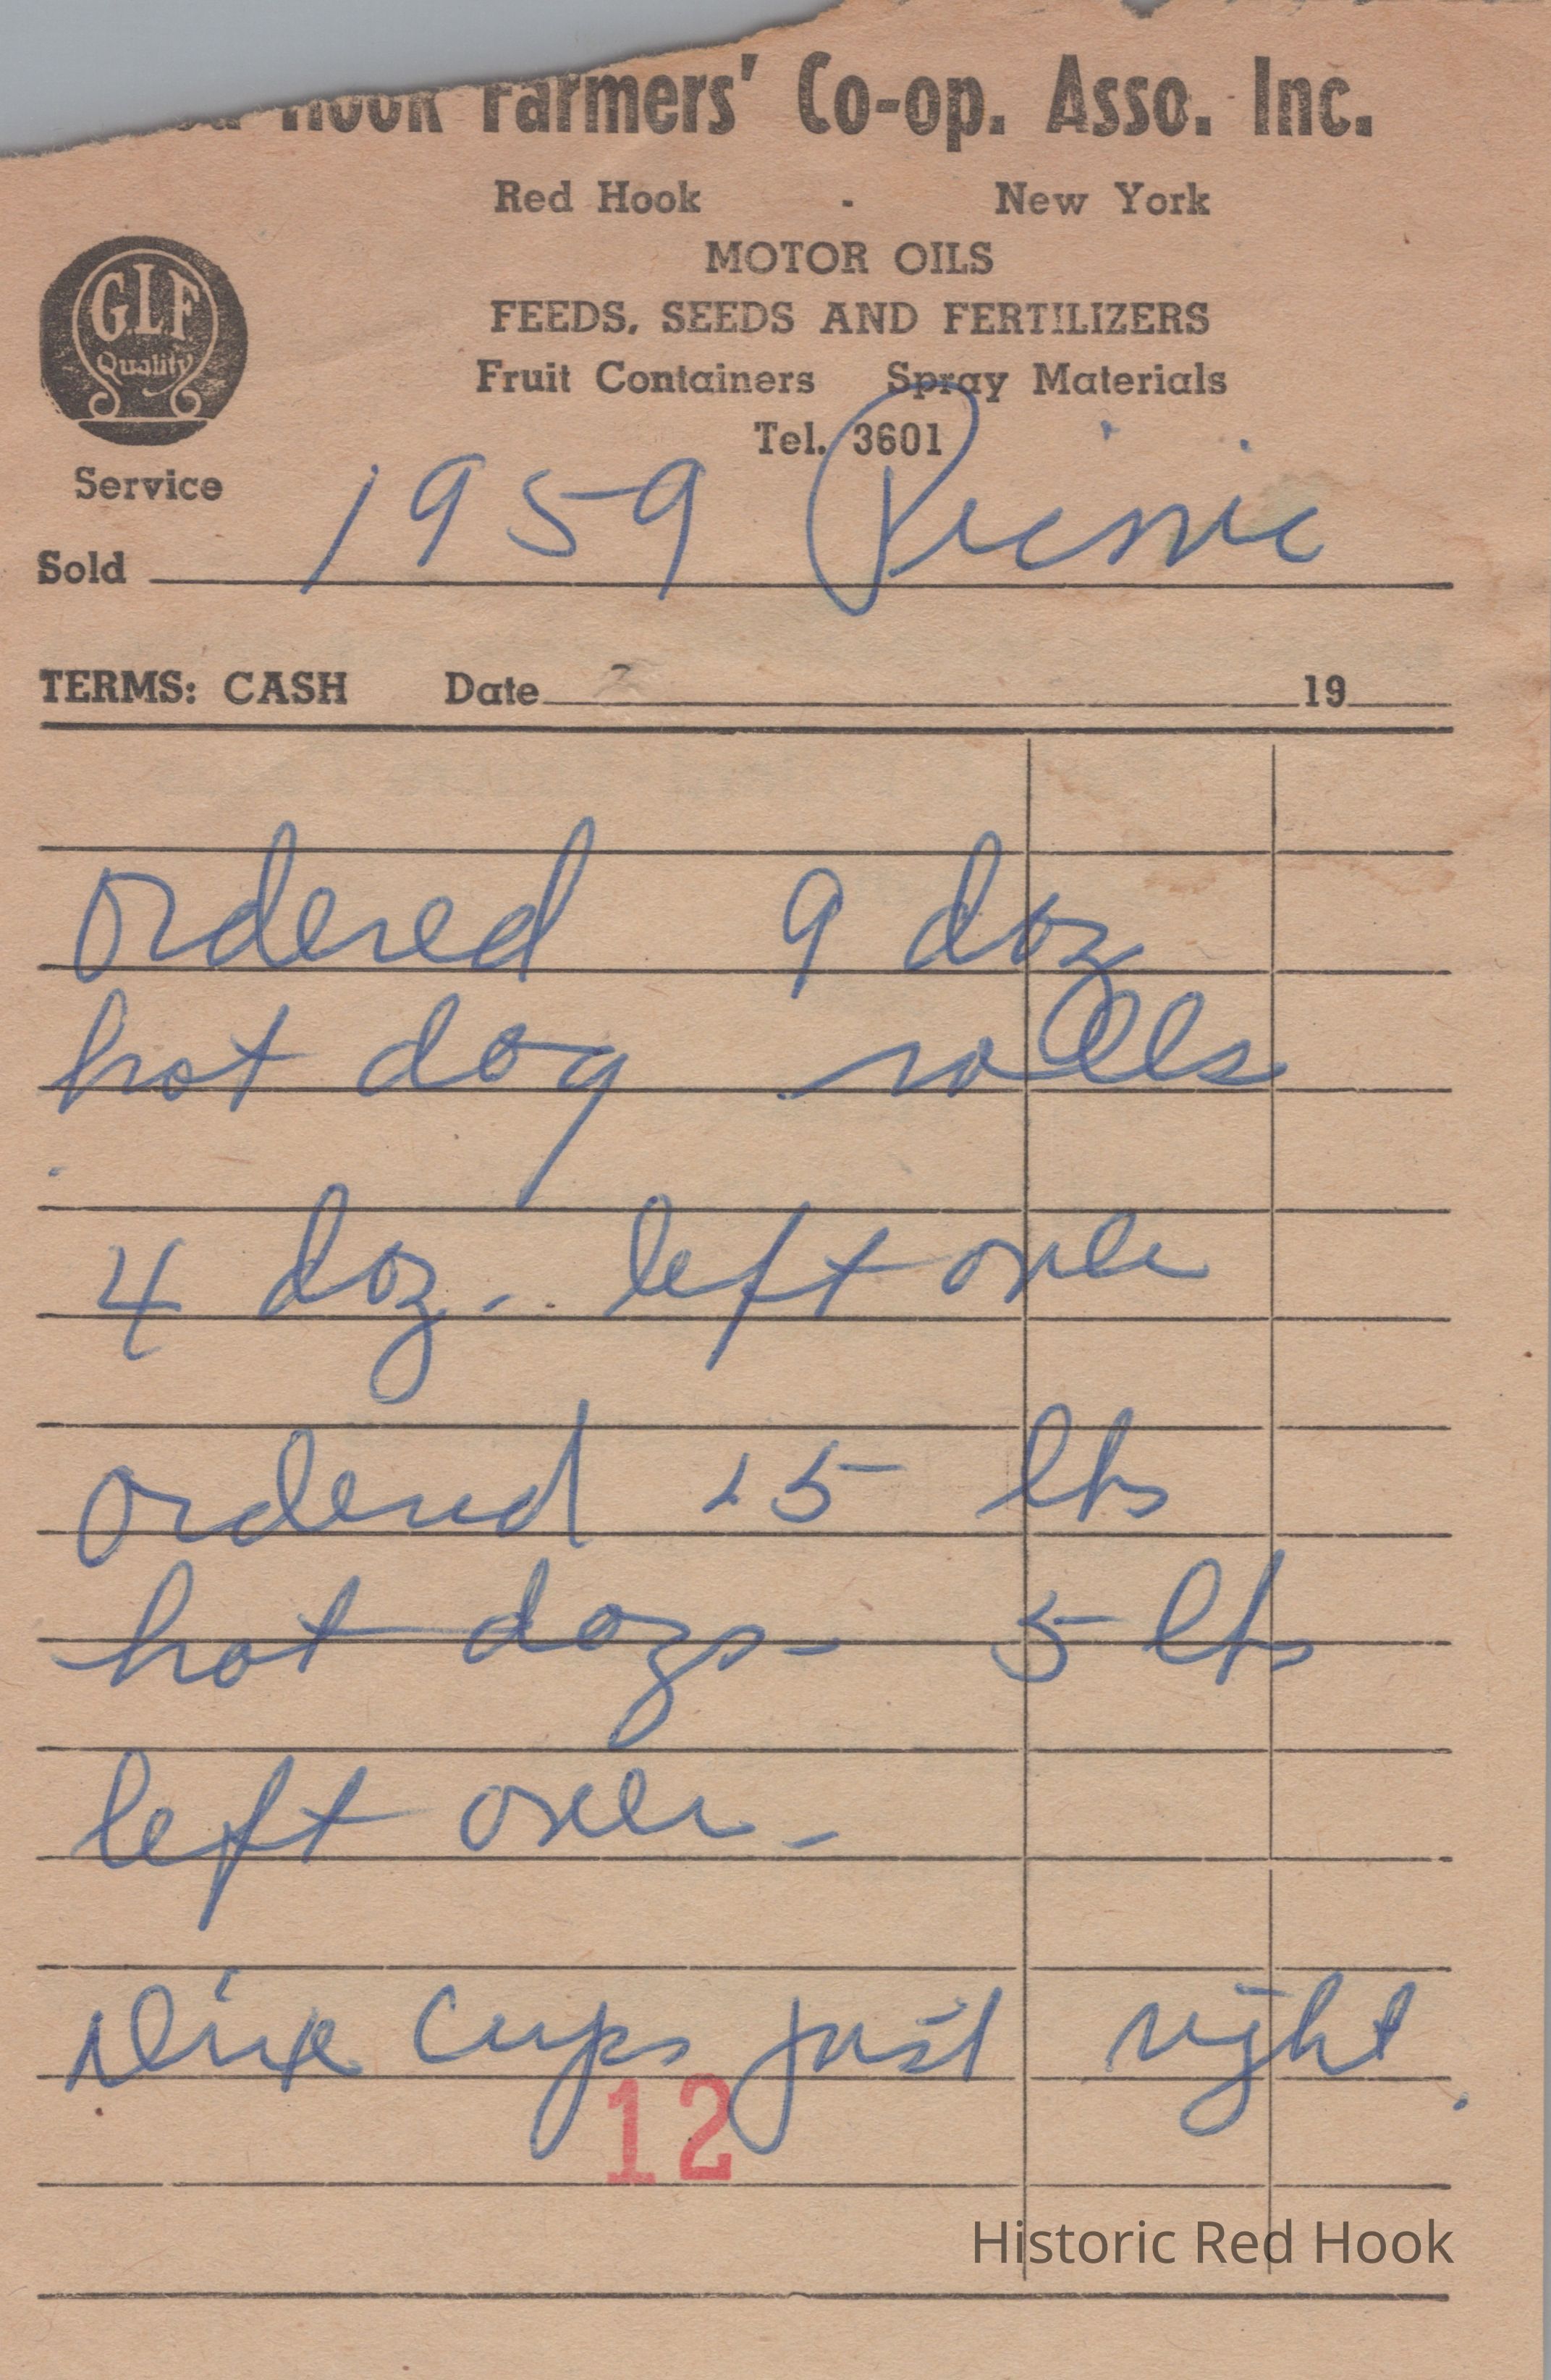 Red Hook Farmers' Co-op. Asso. Inc.
Red Hook - New York
MOTOR OILS
FEEDS, SEEDS AND FERTILIZERS
Fruit Containers Spray Materials
Tel. 3601
G.L.F
Quality
Service
Sold 1959 Picnic
TERMS: CASH Date 19
ordered 9 doz
hot dog rolls
4 doz. left over
ordered 15 lbs
hot dogs - 5 lbs
left over -
Dixie Cups just right.
12
Historic Red Hook